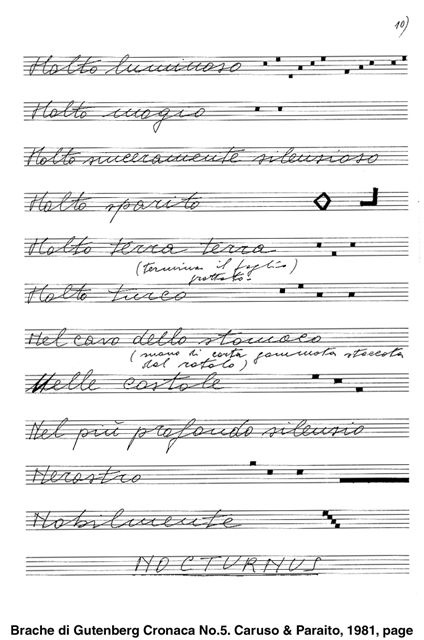 10)
Molto luminoso
Molto mogio
Molto sinceramente silensioso
Molto sparito
Molto terra terra
(termina il foglio)
Molto turco
Nel cavo dello stomaco
(mano di carta gommata staccata
dal rotolo)
Nelle costole
Nel più profondo silensio
Nerastro
Nobilmente
NOCTURNUS
Brache di Gutenberg Cronaca No.5. Caruso & Paraito, 1981, page